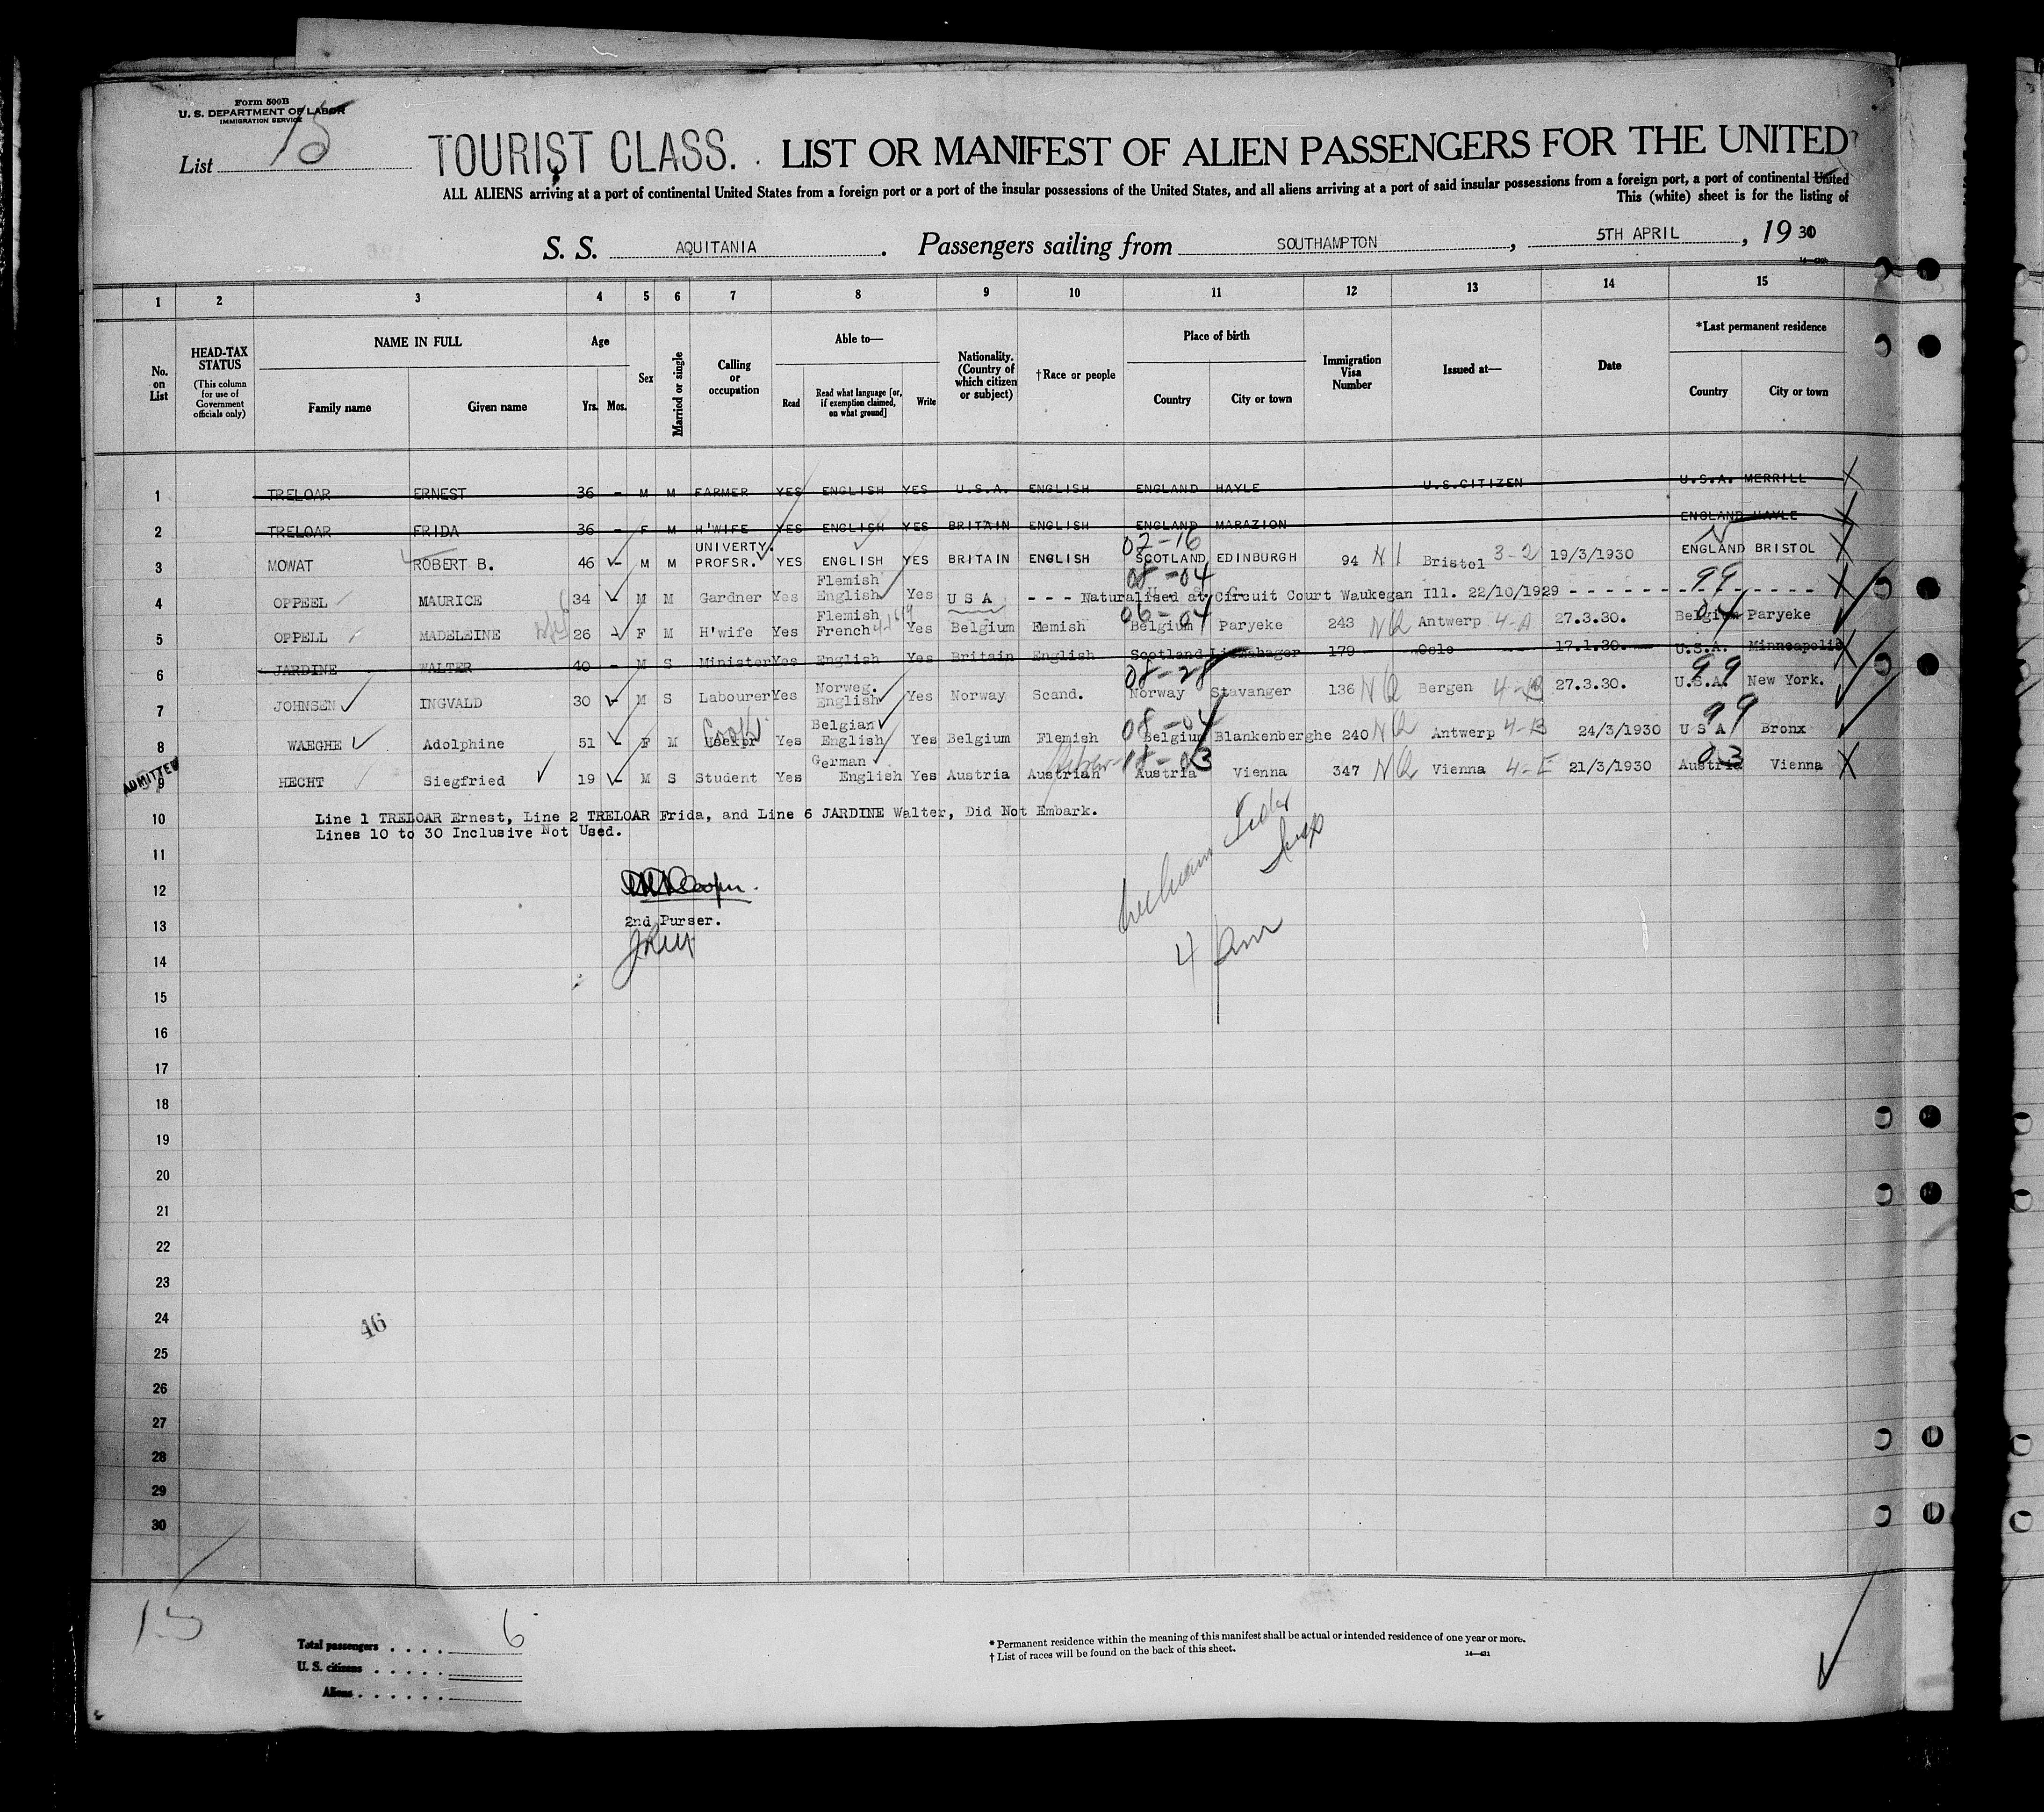 Form 500B
U. S. DEPARTMENT OF LABOR
IMMIGRATION SERVICE
List 15
TOURIST CLASS. LIST OR MANIFEST OF ALIEN PASSENGERS FOR THE UNITED
ALL ALIENS arriving at a port of continental United States from a foreign port or a port of the insular possessions of the United States, and all aliens arriving at a port of said insular possessions from a foreign port, a port of continental United
This (white) sheet is for the listing of
S. S. AQUITANIA. Passengers sailing from SOUTHAMPTON, 5TH APRIL, 1930
1 2 3 4 5 6 7 8 9 10 11 12 13 14 15
No. on List
HEAD-TAX STATUS
(This column for use of Government officials only)
NAME IN FULL
Family name Given name
Age
Yrs. Mos.
Sex
Married or single
Calling or occupation
Able to—
Read
Read what language [or, if exemption claimed, on what ground]
Write
Nationality. (Country of which citizen or subject)
†Race or people
Place of birth
Country City or town
Immigration Visa Number
Issued at—
Date
*Last permanent residence
Country City or town
1 TRELOAR ERNEST 36 - M M FARMER YES ENGLISH YES U.S.A. ENGLISH ENGLAND HAYLE U.S.CITIZEN U.S.A. MERRILL
2 TRELOAR FRIDA 36 - F M H'WIFE YES ENGLISH YES BRITAIN ENGLISH ENGLAND MARAZION ENGLAND HAYLE
02-16
3 MOWAT ROBERT B. 46 - M M UNIVERTY. PROFSR. YES ENGLISH YES BRITAIN ENGLISH SCOTLAND EDINBURGH 94 N I Bristol 3-2 19/3/1930 ENGLAND BRISTOL
08-04 99
4 OPPEEL MAURICE 34 - M M Gardner Yes Flemish English Yes U S A - - - Naturalised at Circuit Court Waukegan Ill. 22/10/1929 - - - - - - - - - - - - - - -
06-04 04
5 OPPELL MADELEINE 26 - F M H'wife Yes Flemish French Yes Belgium Femish Belgium Paryeke 243 NQ Antwerp 4-A 27.3.30. Belgium Paryeke
6 JARDINE WALTER 40 - M S Minister Yes English Yes Britain English Scotland 179 Oslo 17.1.30. U.S.A. Minneapolis
08-28 99
7 JOHNSEN INGVALD 30 - M S Labourer Yes Norweg. English Yes Norway Scand. Norway Stavanger 136 NQ Bergen 4-B 27.3.30. U.S.A. New York.
Cook 08-04 99
8 WAEGHE Adolphine 51 - F M Hsekpr Yes Belgian English Yes Belgium Flemish Belgium Blankenberghe 240 NQ Antwerp 4-B 24/3/1930 U S A Bronx
Hebrew-18-03 03
ADMITTED
9 HECHT Siegfried 19 - M S Student Yes German English Yes Austria Austrian Austria Vienna 347 NQ Vienna 4-E 21/3/1930 Austria Vienna
10 Line 1 TRELOAR Ernest, Line 2 TRELOAR Frida, and Line 6 JARDINE Walter, Did Not Embark.
Lines 10 to 30 Inclusive Not Used.
11
12
2nd Purser.
13
14
15
16
17
18
19
20
21
22
23
24
46
25
26
27
28
29
30
15
Total passengers . . . . 6
U. S. citizens . . . . .
Aliens . . . . . .
* Permanent residence within the meaning of this manifest shall be actual or intended residence of one year or more.
† List of races will be found on the back of this sheet.
14—431